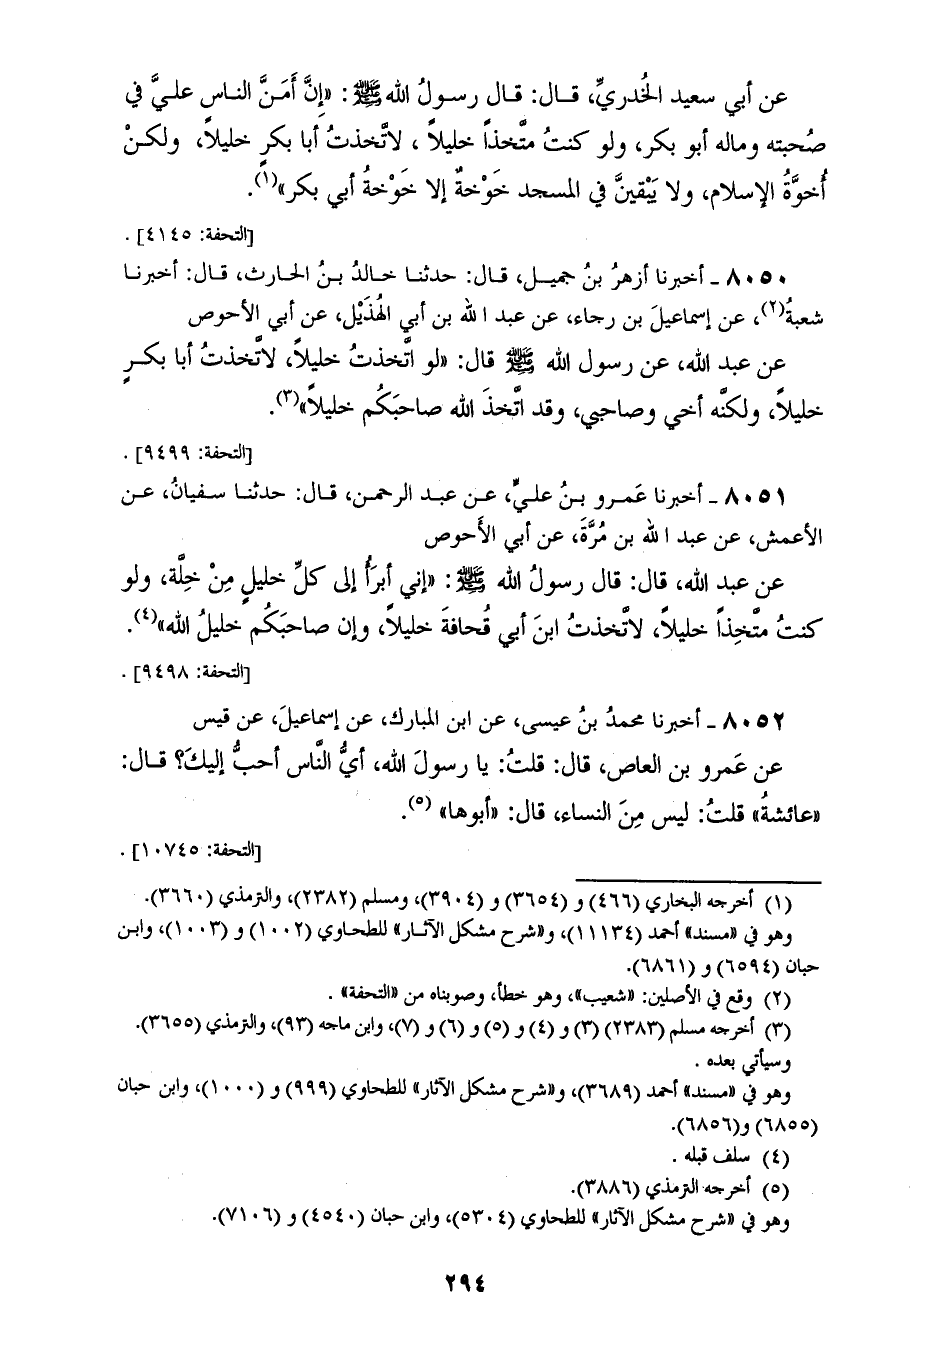 عن أبي سعيد الخُدريِّ، قـال: قـال رسولُ الله ﷺ: «إنَّ أَمَنَّ النـاس عليَّ في
صُحبته وماله أبو بكر، ولو كنتُ متَّخذاً خليلاً ، لاتَّخذتُ أبا بكرٍ خليلاً، ولكـنْ
أُخوَّةُ الإسلام، ولا يَبْقينَّ في المسجد خَوْخةٌ إلا خَوْخةُ أبي بكر»(١).
[التحفة: ٤١٤٥] .
٨٠٥٠ ـ أخبرنا أزهرُ بنُ جميـل، قـال: حدثنـا خـالدُ بـنُ الحـارث، قـال: أخبرنـا
شعبةُ(٢)، عن إسماعيلَ بن رجاء، عن عبد الله بن أبي الهُذَيْل، عن أبي الأحوص
عن عبد الله، عن رسول الله ﷺ قال: «لو اتَّخذتُ خليلاً، لاتَّخذتُ أبـا بكـرٍ
خليلاً، ولكنَّه أخي وصاحبي، وقد اتَّخذَ الله صاحبَكُم خليلاً»(٣).
[التحفة: ٩٤٩٩] .
٨٠٥١ ـ أخبرنا عَمـرو بـنُ علـيٍّ، عـن عبـد الرحمـن، قـال: حدثنـا سـفيانُ، عـن
الأعمش، عن عبد الله بن مُرَّةَ، عن أبي الأَحوص
عن عبد الله، قال: قال رسولُ الله ﷺ: «إني أبرَأُ إلى كلِّ خليلٍ مِنْ خِلَّة، ولو
كنتُ متَّخِذاً خليلاً، لاتَّخذتُ ابنَ أبي قُحافةَ خليلاً، وإن صاحبَكُم خليلُ الله»(٤).
[التحفة: ٩٤٩٨] .
٨٠٥٢ ـ أخبرنا محمدُ بنُ عيسى، عن ابن المبارك، عن إسماعيلَ، عن قيس
عن عَمرو بن العاص، قال: قلتُ: يا رسولَ الله، أيُّ النَّاس أحبُّ إليكَ؟ قـال:
«عائشةُ» قلتُ: ليس مِنَ النساء، قال: «أبوها» (٥).
[التحفة: ١٠٧٤٥] .
(١) أخرجه البخاري (٤٦٦) و (٣٦٥٤) و (٣٩٠٤)، ومسلم (٢٣٨٢)، والترمذي (٣٦٦٠).
وهو في «مسند» أحمد (١١١٣٤)، و«شرح مشكل الآثـار» للطحاوي (١٠٠٢) و (١٠٠٣)، وابـن
حبان (٦٥٩٤) و (٦٨٦١).
(٢) وقع في الأصلين: «شعيب»، وهو خطأ، وصوبناه من «التحفة» .
(٣) أخرجه مسلم (٢٣٨٣) (٣) و (٤) و (٥) و (٦) و (٧)، وابن ماجه (٩٣)، والترمذي (٣٦٥٥).
وسيأتي بعده .
وهو في «مسند» أحمد (٣٦٨٩)، و«شرح مشكل الآثار» للطحاوي (٩٩٩) و (١٠٠٠)، وابن حبان
(٦٨٥٥) و(٦٨٥٦).
(٤) سلف قبله .
(٥) أخرجه الترمذي (٣٨٨٦).
وهو في «شرح مشكل الآثار» للطحاوي (٥٣٠٤)، وابن حبان (٤٥٤٠) و (٧١٠٦).
٢٩٤